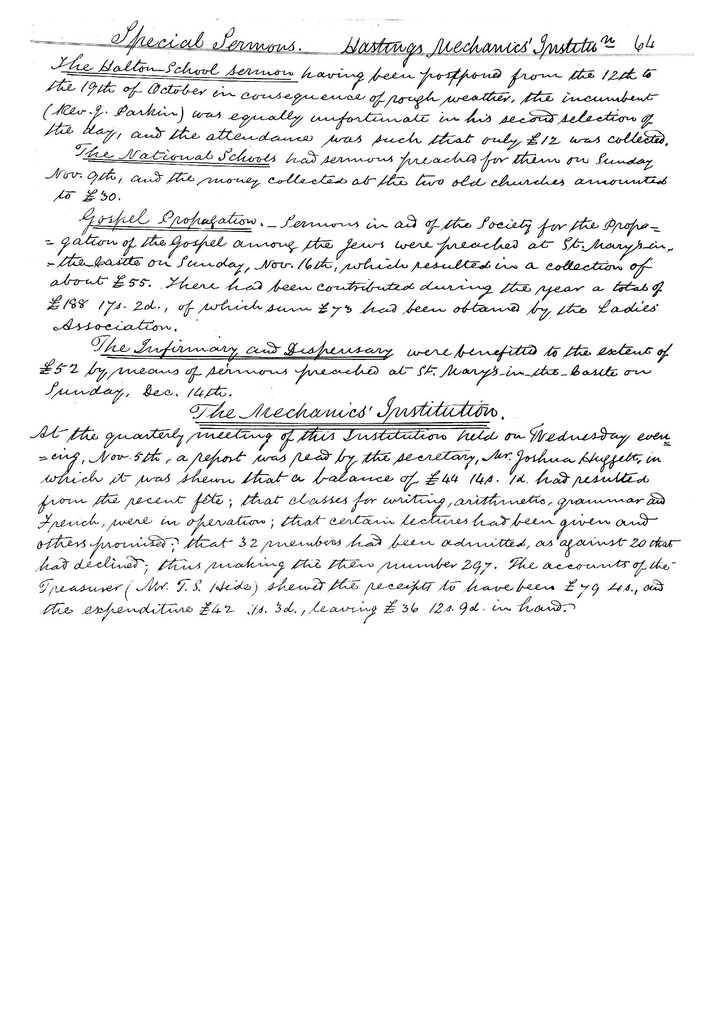 Special Sermons. Hastings Mechanics' Institu n 64
The Halton-School sermon having been postpond from the 12th to
the 19th of October in consequence of rough weather, the incumbent
(Rev. J. Parkin) was equally unfortunate in his second selection of
the day, and the attendance was such that only £12 was collected.
The National Schools had sermons preached for them on Sunday
Nov. 9th, and the money collected at the two old churches amounted
to £30.
Gospel Propagation. – Sermons in aid of the Society for the Propa=
=gation of the Gospel among the Jews were preached at St. Mary's-in-
-the-Castle on Sunday, Nov. 16th, which resulted in a collection of
about £55. There had been contributed during the year a total of
£188 17s. 2d., of which sum £73 had been obtained by the Ladies'
Association.
The Infirmary and Dispensary were benefitted to the extent of
£52 by means of sermons preached at St. Mary's-in-the-Castle on
Sunday, Dec. 14th.
The Mechanics' Institution.
At the quarterly meeting of this Institution held on Wednesday even=
=ing, Nov. 5th, a report was read by the secretary, Mr. Joshua Huggett, in
which it was shewn that a balance of £44 14s. 1d. had resulted
from the recent fête; that classes for writing, arithmetic, grammar and
French, were in operation; that certain lectures had been given and
others promised; that 32 members had been admitted, as against 20 that
had declined; thus making the then number 297. The accounts of the
Treasurer (Mr. T. S. Hide) shewed the receipts to have been £79 4s., and
the expenditure £42 s. 3d., leaving £36 12s. 9d. in hand.